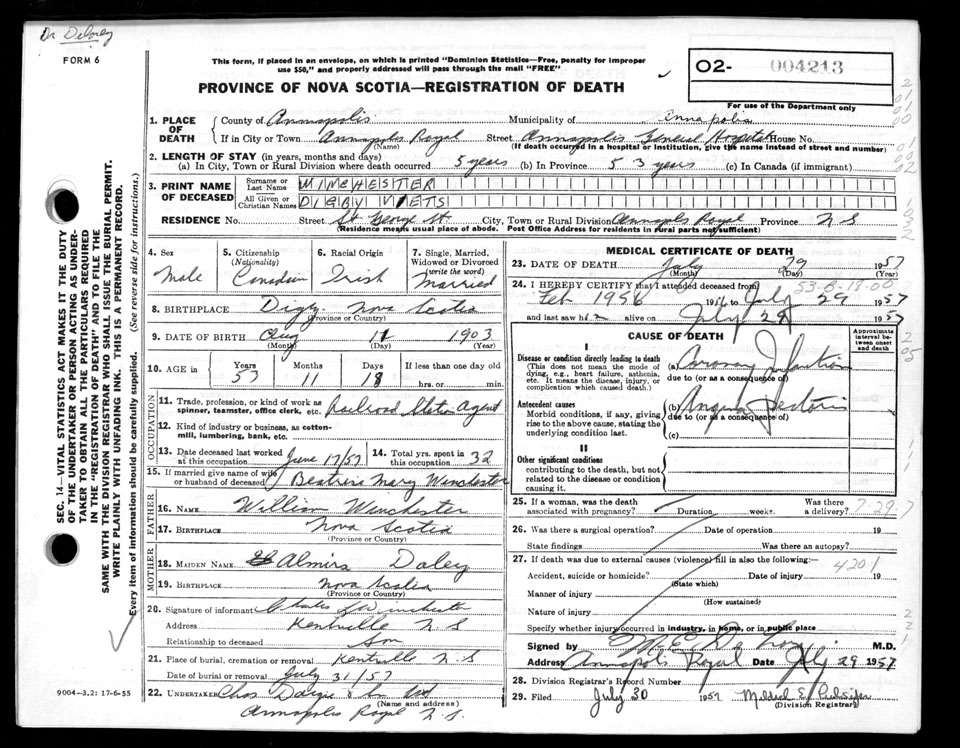 Dr Delorey
FORM 6
This form, if placed in an envelope, on which is printed "Dominion Statistics—Free, penalty for improper
use $50," and properly addressed will pass through the mail "FREE"
O2- 004213
For use of the Department only
PROVINCE OF NOVA SCOTIA—REGISTRATION OF DEATH
SEC. 14—VITAL STATISTICS ACT MAKES IT THE DUTY
OF THE UNDERTAKER OR PERSON ACTING AS UNDER-
TAKER TO OBTAIN ALL THE PARTICULARS REQUIRED
IN THE "REGISTRATION OF DEATH" AND TO FILE THE
SAME WITH THE DIVISION REGISTRAR WHO SHALL ISSUE THE BURIAL PERMIT.
WRITE PLAINLY WITH UNFADING INK. THIS IS A PERMANENT RECORD.
Every item of information should be carefully supplied. (See reverse side for instructions.)
9004-3.2: 17-6-55
1. PLACE OF DEATH
County of Annapolis Municipality of Annapolis
If in City or Town Annapolis Royal Street Annapolis General Hospital House No.
(Name) (If death occurred in a hospital or institution, give the name instead of street and number)
2. LENGTH OF STAY (in years, months and days)
(a) In City, Town or Rural Division where death occurred 5 years (b) In Province 53 years (c) In Canada (if immigrant)
3. PRINT NAME OF DECEASED
Surname or Last Name WINCHESTER
All Given or Christian Names DIGBY VIETS
RESIDENCE No. Street St George St. City, Town or Rural Division Annapolis Royal Province N S
(Residence means usual place of abode. Post Office Address for residents in rural parts not sufficient)
4. Sex
Male
5. Citizenship
(Nationality)
Canadian
6. Racial Origin
Irish
7. Single, Married,
Widowed or Divorced
(write the word)
Married
8. BIRTHPLACE Digby Nova Scotia
(Province or Country)
9. DATE OF BIRTH Aug 11 1903
(Month) (Day) (Year)
10. AGE Years Months Days If less than one day old
53 11 18 hrs. or min.
OCCUPATION
11. Trade, profession, or kind of work as
spinner, teamster, office clerk, etc. Railroad Station Agent
12. Kind of industry or business, as cotton-
mill, lumbering, bank, etc.
13. Date deceased last worked
at this occupation June 17/57
14. Total yrs. spent in
this occupation 32
15. If married give name of wife
or husband of deceased Beatrice Mary Winchester
FATHER
16. NAME William Winchester
17. BIRTHPLACE Nova Scotia
(Province or Country)
MOTHER
18. MAIDEN NAME Almira Daley
19. BIRTHPLACE Nova Scotia
(Province or Country)
20. Signature of informant Winchester
Address Kentville N S
Relationship to deceased Son
21. Place of burial, cremation or removal Kentville N S
Date of burial or removal July 31/57
22. UNDERTAKER Chas
(Name and address)
Annapolis Royal N. S.
MEDICAL CERTIFICATE OF DEATH
23. DATE OF DEATH July 29 1957
(Month) (Day) (Year)
53-B-18-00
24. I HEREBY CERTIFY that I attended deceased from
Feb 1956 1956 to July 29 1957
and last saw him alive on July 29 1957
CAUSE OF DEATH
Approximate
interval be-
tween onset
and death
I
Disease or condition directly leading to death
(This does not mean the mode of
dying, e.g., heart failure, asthenia,
etc. It means the disease, injury, or
complication which caused death.)
(a) Coronary Infarction
due to (or as a consequence of)
Antecedent causes
Morbid conditions, if any, giving
rise to the above cause, stating the
underlying condition last.
(b) Angina Pectoris
due to (or as a consequence of)
(c)
II
Other significant conditions
contributing to the death, but not
related to the disease or condition
causing it.
25. If a woman, was the death
associated with pregnancy? Duration weeks.
Was there
a delivery? 7-29-7
26. Was there a surgical operation? Date of operation 19
State findings Was there an autopsy?
27. If death was due to external causes (violence) fill in also the following:
4201
Accident, suicide or homicide? Date of injury 19
(State which)
Manner of injury
(How sustained)
Nature of injury
Specify whether injury occurred in industry, in home, or in public place
Signed by M.D.
Address Annapolis Royal Date July 29 1957
28. Division Registrar's Record Number
29. Filed July 30 1957 Mildred E.
(Division Registrar)